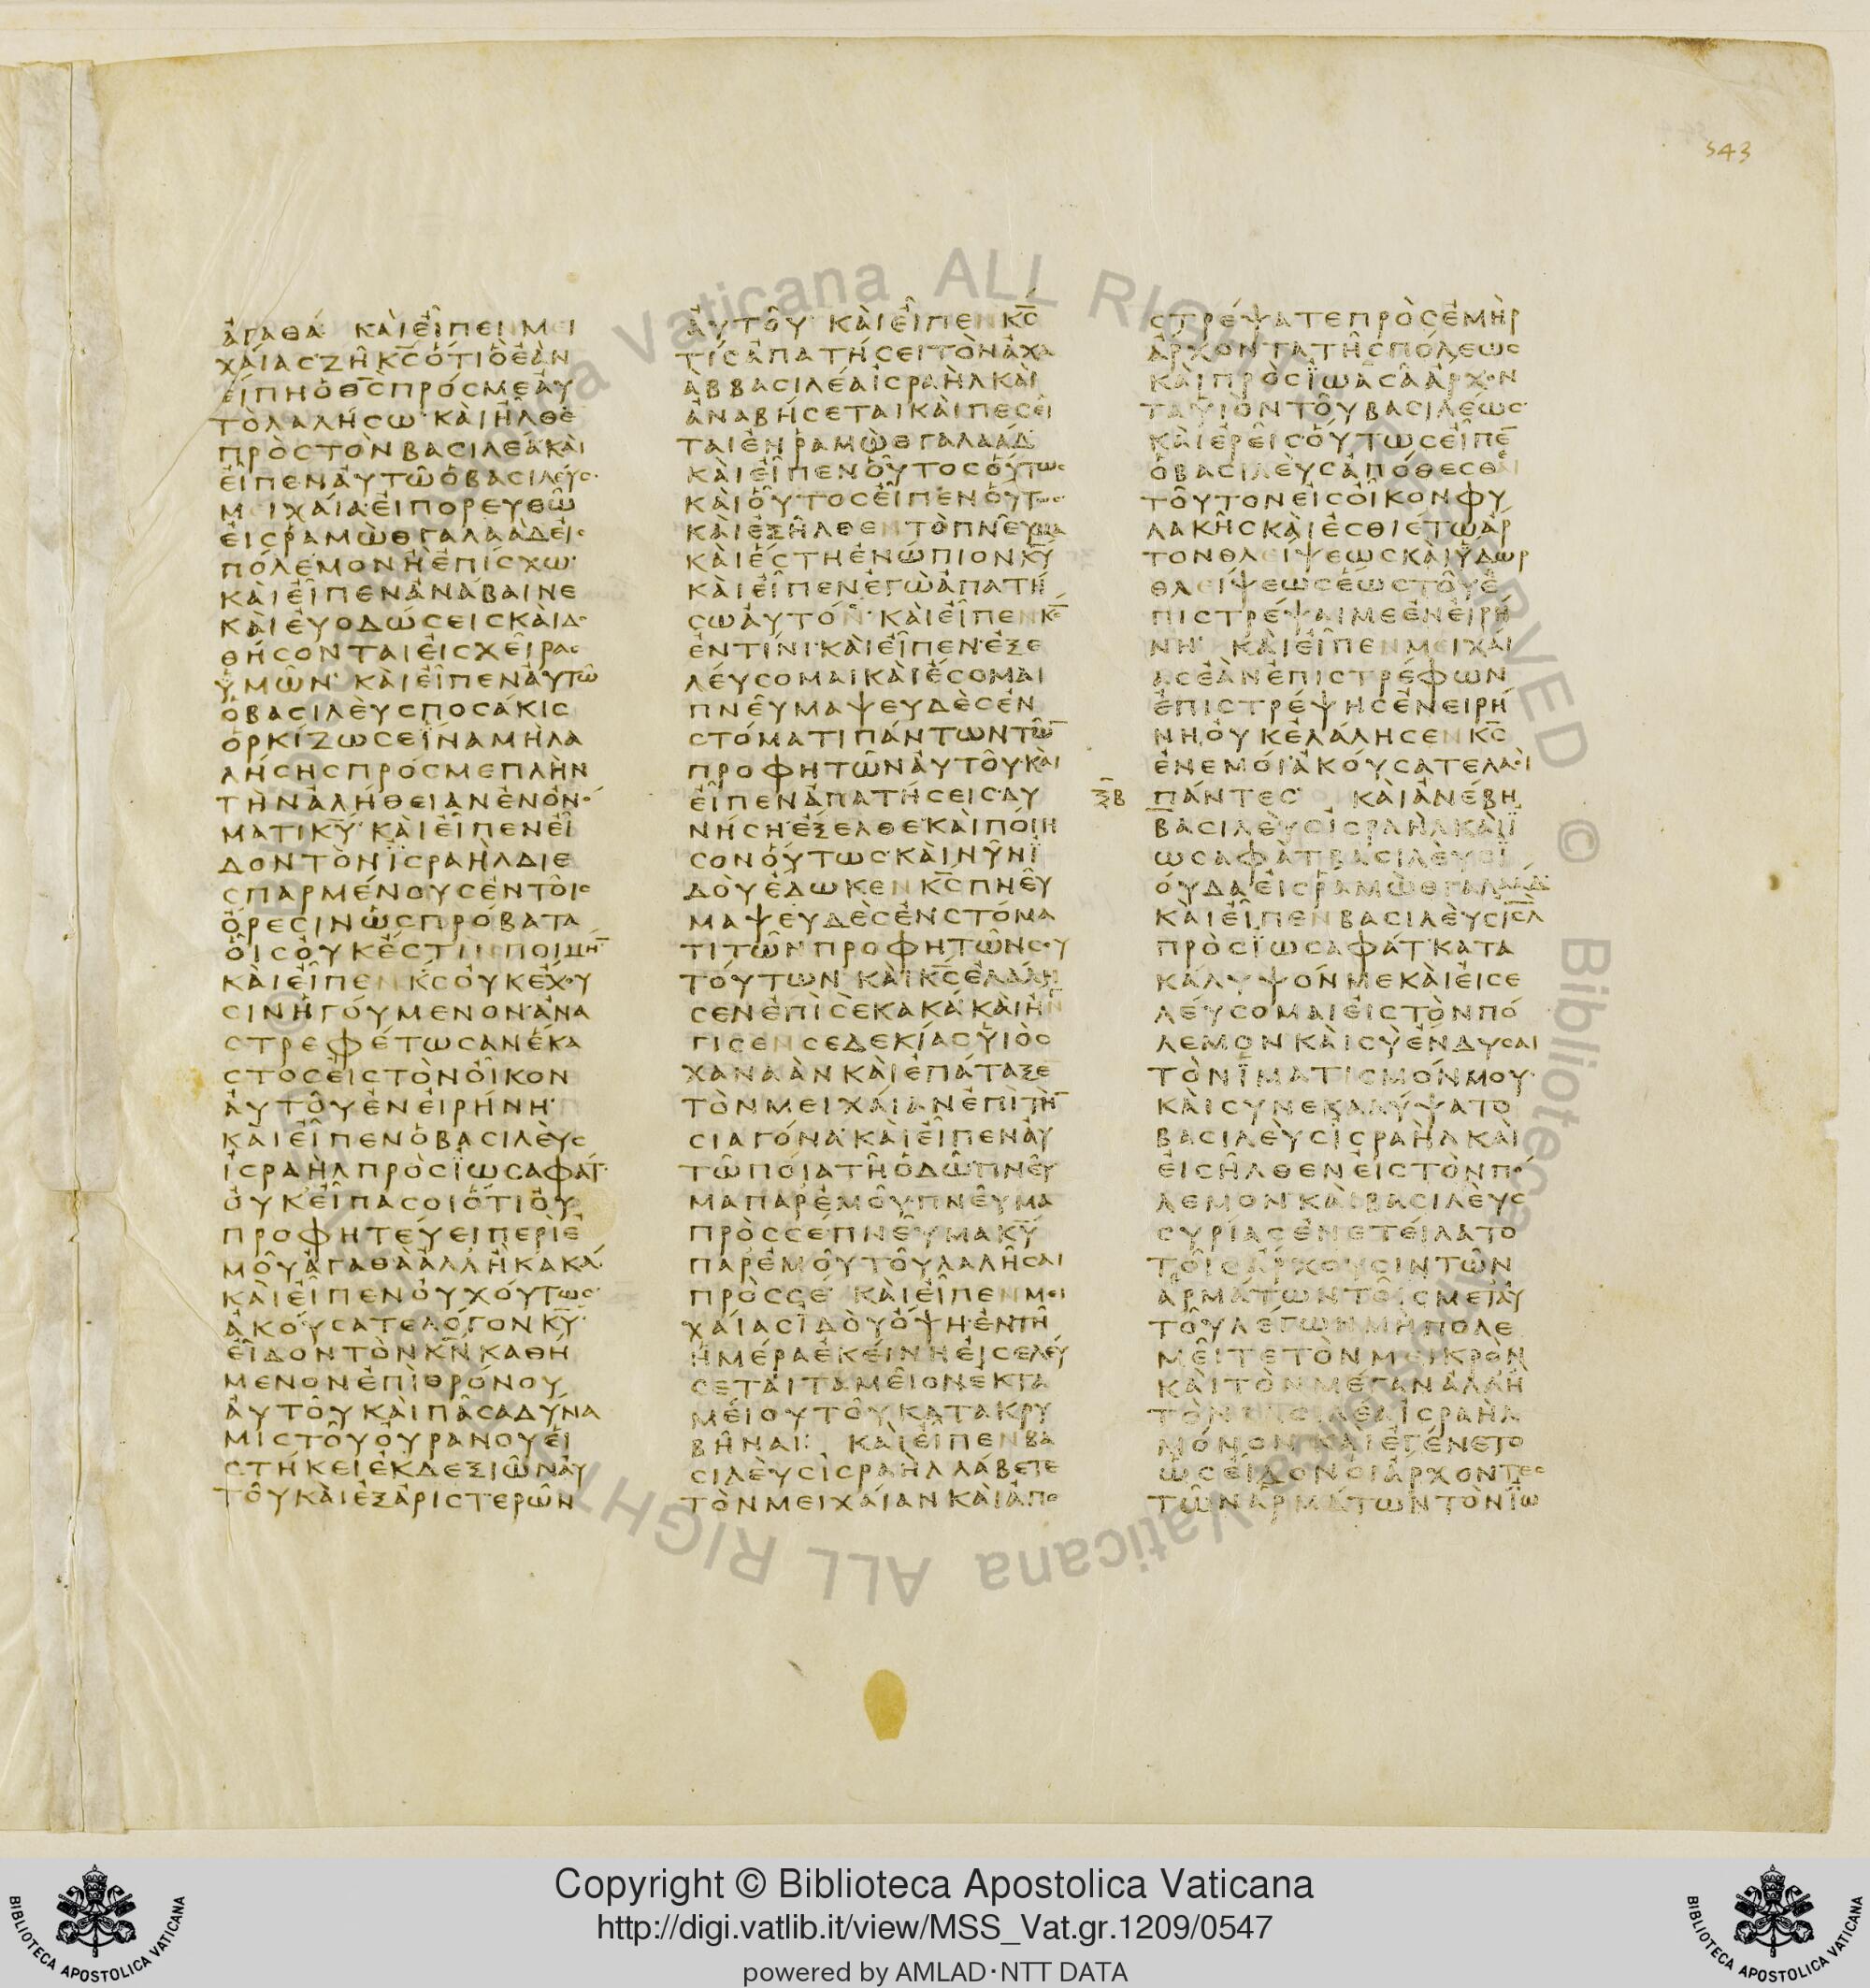 543
ἀγαθά καὶ εἶπεν Μει
χαίας ζῆ κ̅ς̅ ὅτι ὃ ἐὰν
εἴπῃ ὁ θ̅ς̅ πρός με αὐ
τὸ λαλήσω· καὶ ἦλθε
πρὸς τὸν βασιλέα καὶ
εἶπεν αὐτῷ ὁ βασιλεύς·
Μειχαία εἰ πορευθῶ
εἰς Ῥαμὼθ Γαλαὰδ εἰς
πόλεμον ἢ ἐπίσχω·
καὶ εἶπεν ἀνάβαινε
καὶ εὐοδώσεις καὶ δο
θήσονται εἰς χεῖρας
ὑμῶν· καὶ εἶπεν αὐτῷ
ὁ βασιλεὺς ποσάκις
ὁρκίζω σε ἵνα μὴ λα
λήσῃς πρός με πλὴν
τὴν ἀλήθειαν ἐν ὀνό
ματι κ̅υ̅· καὶ εἶπεν εἶ
δον τὸν Ἰσραὴλ διε
σπαρμένους ἐν τοῖς
ὄρεσιν ὡς πρόβατα
οἷς οὐκ ἔστιν ποιμη̅
καὶ εἶπεν κ̅ς̅ οὐκ ἔχου
σιν ἡγούμενον· ἀνα
στρεφέτωσαν ἕκα
στος εἰς τὸν οἶκον
αὐτοῦ ἐν εἰρήνῃ·
καὶ εἶπεν ὁ βασιλεὺς
Ἰσραὴλ πρὸς Ἰωσαφάτ·
οὐκ εἶπά σοι ὅτι οὐ
προφητεύει περὶ ἐ
μοῦ ἀγαθὰ ἀλλ ἢ κακά·
καὶ εἶπεν οὐχ οὕτως·
ἀκούσατε λόγον κ̅υ̅·
εἶδον τὸν κ̅ν̅ καθή
μενον ἐπὶ θρόνου
αὐτοῦ καὶ πᾶσα δύνα
μις τοῦ οὐρανοῦ εἱ
στήκει ἐκ δεξιῶν αὐ
τοῦ καὶ ἐξ ἀριστερῶν
αὐτοῦ· καὶ εἶπεν κ̅ς̅
τίς ἀπατήσει τὸν Ἀχα
ὰβ βασιλέα Ἰσραὴλ καὶ
ἀναβήσεται καὶ πεσεῖ
ται ἐν Ῥαμὼθ Γαλαάδ·
καὶ εἶπεν οὗτος οὕτως
καὶ οὗτος εἶπεν οὕτως·
καὶ ἐξῆλθεν τὸ πνεῦμα
καὶ ἔστη ἐνώπιον κ̅υ̅
καὶ εἶπεν ἐγὼ ἀπατή
σω αὐτόν· καὶ εἶπεν κ̅ς̅
ἐν τίνι· καὶ εἶπεν· ἐξε
λεύσομαι καὶ ἔσομαι
πνεῦμα ψευδὲς ἐν
στόματι πάντων τῶ̅
προφητῶν αὐτοῦ· καὶ
εἶπεν ἀπατήσεις· δυ
νήσῃ· ἔξελθε καὶ ποίη
σον οὕτως· καὶ νῦν ἰ
δοὺ ἔδωκεν κ̅ς̅ πνεῦ
μα ψευδὲς ἐν στόμα
τι τῶν προφητῶν σου
τούτων· καὶ κ̅ς̅ ἐλάλη
σεν ἐπὶ σὲ κακά· καὶ ἤγ
γισεν Σεδεκίας υἱὸς
Χαναὰν καὶ ἐπάταξε
τὸν Μειχαίαν ἐπὶ τὴ̅
σιαγόνα· καὶ εἶπεν αὐ
τῷ ποίᾳ τῇ ὁδῷ πνεῦ
μα παρ ἐμοῦ· πνεῦμα
πρὸς σέ· πνεῦμα κ̅υ̅
παρ ἐμοῦ τοῦ λαλῆσαι
πρὸς σέ· καὶ εἶπεν Μει
χαίας ἰδοὺ ὄψῃ ἐν τῇ
ἡμέρᾳ ἐκείνῃ εἰσελεύ
σεταιταμεῖον ἐκ τα
μείου τοῦ κατακρυ
βῆναι: καὶ εἶπεν βα
σιλεὺς Ἰσραὴλ λάβετε
τὸν Μειχαίαν καὶ ἀπο
στρέψατε πρὸς Ἐμὴρ
ἄρχοντα τῆς πόλεως
καὶ πρὸς Ἰωὰς ἄρχον
τα υἱὸν τοῦ βασιλέως·
καὶ ἐρεῖς οὕτως εἶπε̅
ὁ βασιλεὺς ἀπόθεσθαι
τοῦτον εἰς οἶκον φυ
λακῆς καὶ ἐσθιέτω ἄρ
τον θλείψεως καὶ ὕδωρ
θλείψεως ἕως τοῦ ἐ
πιστρέψαι με ἐν εἰρή
νῃ· καὶ εἶπεν Μειχαί
ας ἐὰν ἐπιστρέφων
ἐπιστρέψῃς ἐν εἰρή
νῃ οὐκ ἐλάλησεν κ̅ς̅
ἐν ἐμοί· ἀκούσατε λαοὶ
ξ̅β̅ πάντες· καὶ ἀνέβη
βασιλεὺς Ἰσραὴλ καὶ Ἰ
ωσαφὰτ βασιλεὺς Ἰ
ούδα εἰς Ῥαμὼθ Γαλαάδ·
καὶ εἶπεν βασιλεὺς Ἰ̅σ̅λ̅
πρὸς Ἰωσαφάτ· κατα
κάλυψόν με καὶ εἰσε
λεύσομαι εἰς τὸν πό
λεμον καὶ σὺ ἔνδυσαι
τὸν ἱματισμόν μου·
καὶ συνεκαλύψατο
βασιλεὺς Ἰσραὴλ καὶ
εἰσῆλθεν εἰς τὸν πό
λεμον καὶ βασιλεὺς
Συρίας ἐνετείλατο
τοῖς ἄρχουσιν τῶν
ἁρμάτων τοῖς μετ αὐ
τοῦ λέγων μὴ πολε
μεῖτε τὸν μεικρὸν
καὶ τὸν μέγαν ἀλλ ἢ
τὸν βασιλέα Ἰσραὴλ
μόνον· καὶ ἐγένετο
ὡς εἶδον οἱ ἄρχοντες
τῶν ἁρμάτων τὸν Ἰω
Copyright © Biblioteca Apostolica Vaticana
http://digi.vatlib.it/view/MSS_Vat.gr.1209/0547
powered by AMLAD·NTT DATA